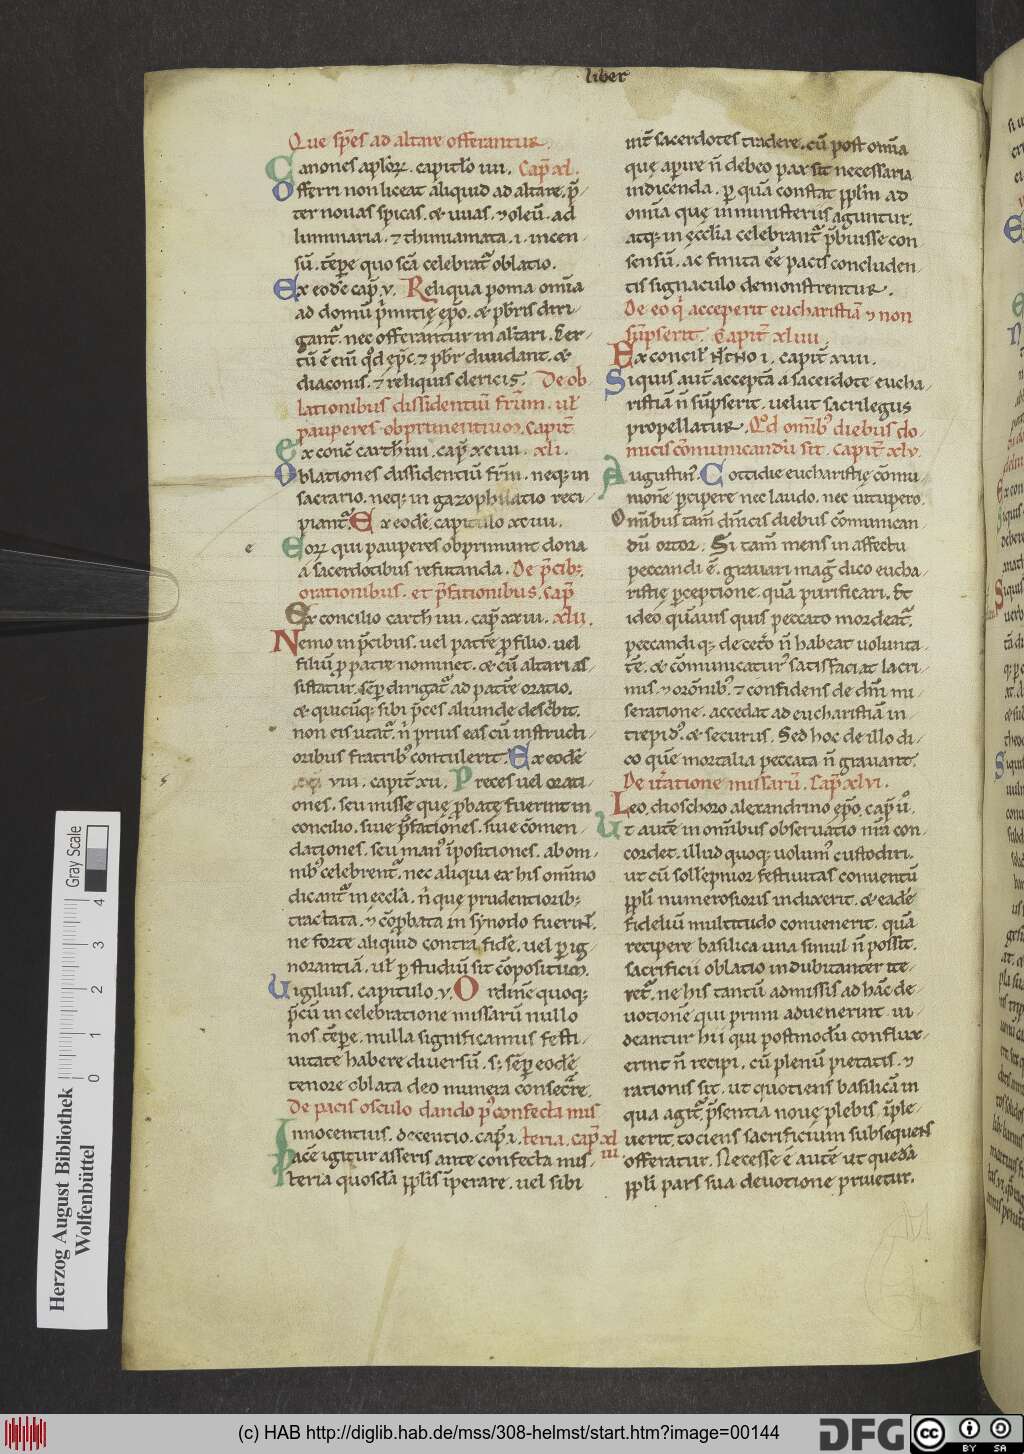 liber
Que sp̄es ad altare offerantur.
Canones apl̄oꝝ. capitl̄o iiii. Cap̄ xl.
Offerri non liceat aliquid ad altare. p̄
ter nouas spicas. & uuas. ⁊ oleū. ad
luminaria. ⁊ thimiamata. i. incen
sū. tēpe quo sc̄a celebrat᷑ oblatio.
Ex eodē cap̄. v. Reliqua poma om̄ia
ad domū p̄mitię ep̄o. & p̄bris diri
gant᷑. nec offerantur in altari. Cer
tū ē em̄ qd̄ ep̄c ⁊ pbr̄ diuidant. &
diaconis. ⁊ reliquis clericis. De ob
lationibus dissidentiū fr̄m. ul̄
pauperes obprimentium. Capit̄
Ex conc̄ carth̄ iiii. cap̄ xciiii. xli.
Oblationes dissidentiū fr̄m. neq; in
sacrario. neq; in gazophilatio reci
piant᷑. Ex eodē. capitulo xciiii.
Eoꝝ qui pauperes obprimunt dona
a sacerdotibus refutanda. De p̄cib;.
orationibus. et p̄fationibus. Cap̄
Ex concilio carth̄ iiii. cap̄ xxiii. xlii.
Nemo in p̄cibus. uel patrē p̄ filio. uel
filiū p̄ patre nominet. & cū altari as
sistatur. sēp dirigat᷑ ad patrē oratio.
& quicūq; sibi p̄ces aliunde describit.
non eis utat᷑. n̄ prius eas cū instructi
oribus fratrib᷒ contulerit. Ex eodē
viii. capit̄ xii. Preces uel orati
ones. seu missę quę p̄batę fuerint in
concilio. siue p̄fationes. siue cōmen
dationes. seu man᷒ īpositiones. ab om
nib᷒ celebrent᷑. nec aliqua ex his om̄ino
dicant᷑ in ecclā. n̄ que prudentiorib;
tractata. ⁊ cōp̄bata in synodo fuerint.
ne forte aliquid contra fidē. uel p̄ ig
norantiā. ul̄ p̄ studiū sit cōpositum.
Uigilius. capitulo. v. Ordinē quoq;
p̄cū in celebratione missarū nullo
nos tēpe. nulla significamus festi
uitate habere diuersū. s; sēp eodē
tenore oblata deo munera consecr̄e.
De pacis osculo dando p᷒ confecta mis
Innocentius. decentio. cap̄. i. teria. cap̄ xl
Pacē igitur asseris ante confecta mis iii.
teria quosdā pp̄lis īperare. uel sibi
int̄ sacerdotes tradere. cū post om̄ia
quę aperire n̄ debeo pax sit necessaria
indicenda. p quā constat pp̄lm ad
om̄ia quę in ministeriis aguntur.
atq; in ecclīa celebrant᷑ p̄buisse con
sensū. ac finita eē pacis concluden
tis signaculo demonstrentur.
De eo q̇ acceperit eucharistiā ⁊ non
sūpserit. Capit̄ xliiii.
Ex concil̄ . capit̄ xiiii.
Siquis aut̄ acceptā a sacerdote eucha
ristiā n̄ sūpserit. uelut sacrilegus
propellatur. Qd̄ omīb᷒ diebus do
nucis cōmunicandū sit. Capit̄ xlv.
Augustin᷒. Cottidie eucharistię cōmu
nionē p̄cipere nec laudo. nec uitupero.
Om̄ibus tam̄ dn̄icis diebus cōmunican
dū ortor. Si tam̄ mens in affectu
peccandi ē. grauari mag̃ dico eucha
ristię p̄ceptione. quā purificari. Et
ideo quāuis quis peccato mordeat᷑.
peccandi q; de cet̄o n̄ habeat uolunta
tē. & cōmunicatur᷒ satisfaciat lacri
mis. ⁊ orōnib᷒. ⁊ confidens de dn̄i mi
seratione. accedat ad eucharistiā in
trepid᷒. & securus. Sed hoc de illo di
co quē mortalia peccata n̄ grauant.
De it̄atione missarū. Cap̄ xlvi.
Leo. dioschoro alexandrino ep̄o. cap̄ ii᷒.
Ut autē in om̄ibus obseruatio nr̄a con
cordet. illud quoq; uolum᷒ custodiri.
ut cū sollēpnior festiuitas conuentū
pp̄li numerosioris indixerit. & eadē
fidelium multitudo conuenerit. quā
recipere basilica una simul n̄ possit.
sacrificii oblatio indubitanter ite
ret᷑. ne his tantū admissis ad hāc de
uotionē qui primi aduenerint. ui
deantur hii qui postmodū conflux
erint n̄ recipi. cū plenū pietatis. ⁊
rationis sit. ut quotiens basilicā in
qua agit᷑ p̄sentia nouę plebis īple
uerit. tociens sacrificium subsequens
offeratur. Necesse ē autē ut quedā
pp̄li pars sua deuotione priuetur.
Gray Scale
4
3
2
1
0
Herzog August Bibliothek
Wolfenbüttel
(c) HAB http://diglib.hab.de/mss/308-helmst/start.htm?image=00144
DFG
cc
BY
SA